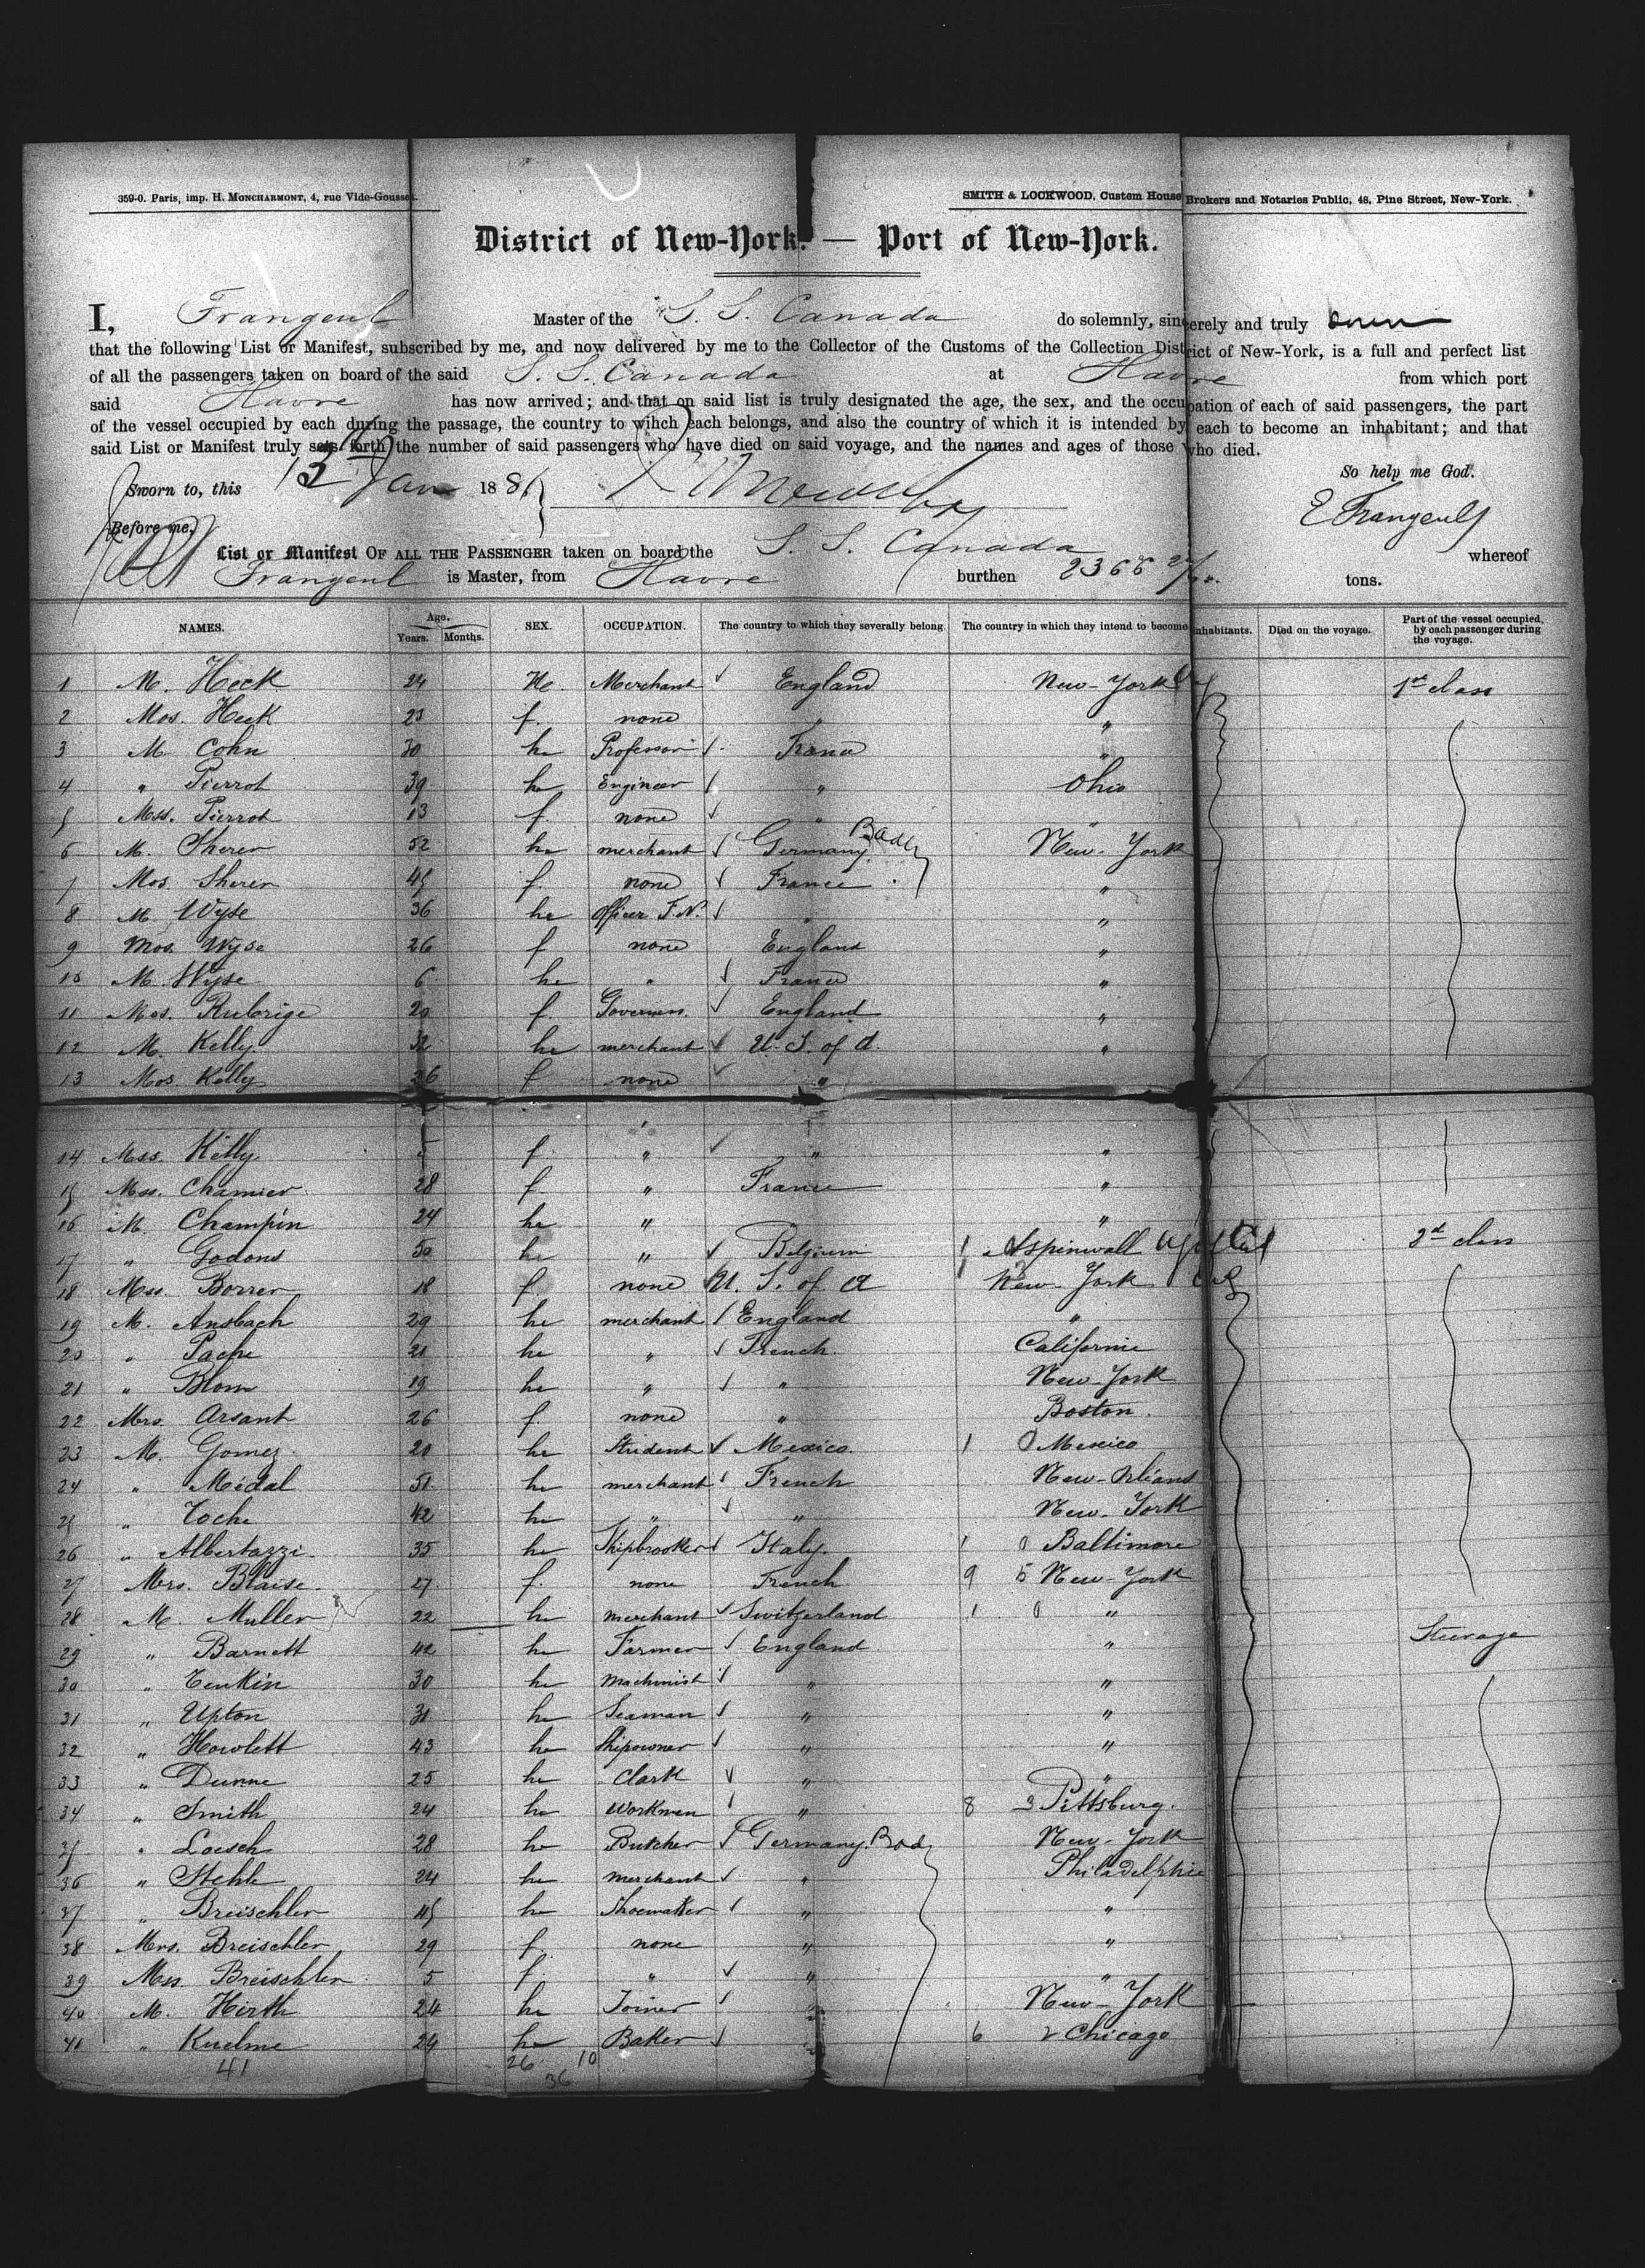 359-0. Paris, imp. H. MONCHARMONT, 4, rue Vide-Gousset.
SMITH & LOCKWOOD, Custom House Brokers and Notaries Public, 48, Pine Street, New-York.
District of New-York. — Port of New-York.
I, Frangeul Master of the S. S. Canada do solemnly, sincerely and truly
that the following List or Manifest, subscribed by me, and now delivered by me to the Collector of the Customs of the Collection District of New-York, is a full and perfect list
of all the passengers taken on board of the said S. S. Canada at Havre from which port
said Havre has now arrived; and that on said list is truly designated the age, the sex, and the occupation of each of said passengers, the part
of the vessel occupied by each during the passage, the country to wihch each belongs, and also the country of which it is intended by each to become an inhabitant; and that
said List or Manifest truly sets forth the number of said passengers who have died on said voyage, and the names and ages of those who died.
So help me God.
Sworn to, this 13th Jan 1881
E Frangeul
Before me,
List or Manifest OF ALL THE PASSENGER taken on board the S. S. Canada whereof
Frangeul is Master, from Havre burthen 2366 tons.
NAMES. Age. Years. Months. SEX. OCCUPATION. The country to which they severally belong. The country in which they intend to become inhabitants. Died on the voyage. Part of the vessel occupied, by each passenger during the voyage.
1 M. Heck 24 he. Merchant England New-York 1st class
2 Mos. Heck 23 f. none " "
3 M. Cohn 30 he Professor France "
4 " Pierrot 39 he Engineer " Ohio
5 Mss. Pierrot 13 f. none " "
6 M. Sherer 52 he merchant Germany Baden New-York
7 Mos. Sherer 45 f. none France "
8 M. Wyse 36 he officer F.N. " "
9 Mos. Wyse 26 f none England "
10 M. Wyse 6 he " France "
11 Mos. Rubrige 20 f. Governess England "
12 M. Kelly 32 he merchant U. S. of A. "
13 Mos. Kelly 26 f none "
14 Mss. Kelly 5 f. " " "
15 Mss. Chamier 28 f. " France "
16 M. Champin 24 he " "
17 " Godons 50 he " Belgium 1 Aspinwall 2d class
18 Mss. Borrer 18 f. none U. S. of A New-York
19 M. Ansbach 29 he merchant England "
20 " Pache 21 he " French. Californie
21 " Blom 19 he " " New-York
22 Mrs. Arsant 26 f. none " Boston.
23 M. Gomez 20 he Student Mexico. 1 0 Mexico
24 " Midal 51 he merchant French New-Orleans
25 " Toche 42 he " " New-York
26 " Albertazzi 35 he Shipbrooker Italy. 1 0 Baltimore
27 Mrs. Blaise. 27 f. none French 9 5 New-York
28 M. Muller 22 he merchant Switzerland 1 0 "
29 " Barnett 42 he Farmer England " Steerage
30 " Tenkin 30 he Machinist " "
31 " Upton 31 he Seaman " "
32 " Howlett 43 he Shipowner " "
33 " Dunne 25 he Clark " "
34 " Smith 24 he Workmen " 8 3 Pittsburg.
35 " Loesch 28 he Butcher Germany. Bad New-York
36 " Stehle 24 he merchant " Philadelphie
37 " Breischler 45 he Shoemaker " "
38 Mrs. Breischler 29 f. none " "
39 Mss. Breischler 5 f " " "
40 M. Hirth 24 he Joiner " New-York
41 " Kuelme 24 he Baker " 6 2 Chicago
41 26 10
36